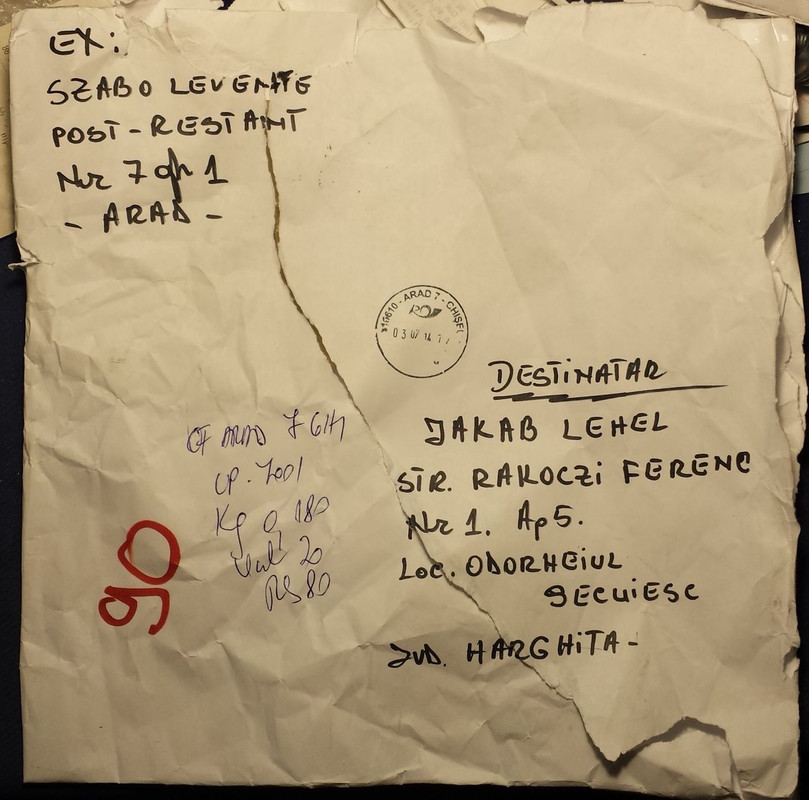 EX:
SZABO LEVENTE
POST-RESTANT
Nr 7 ap 1
- ARAD -
310610 - ARAD 7 - CHIȘE
03 07 14
DESTINATAR
JAKAB LEHEL
STR. RAKOCZI FERENC
Nr 1. Ap 5.
Loc. ODORHEIUL
SECUIESC
JUD. HARGHITA-
OF ARAD 7 GH1
CP. 7001
Kg 0,180
Val 20
RS 80
90